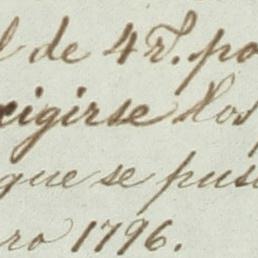 l de 4 rs. po
xigirse los
que se pus
ro 1796.